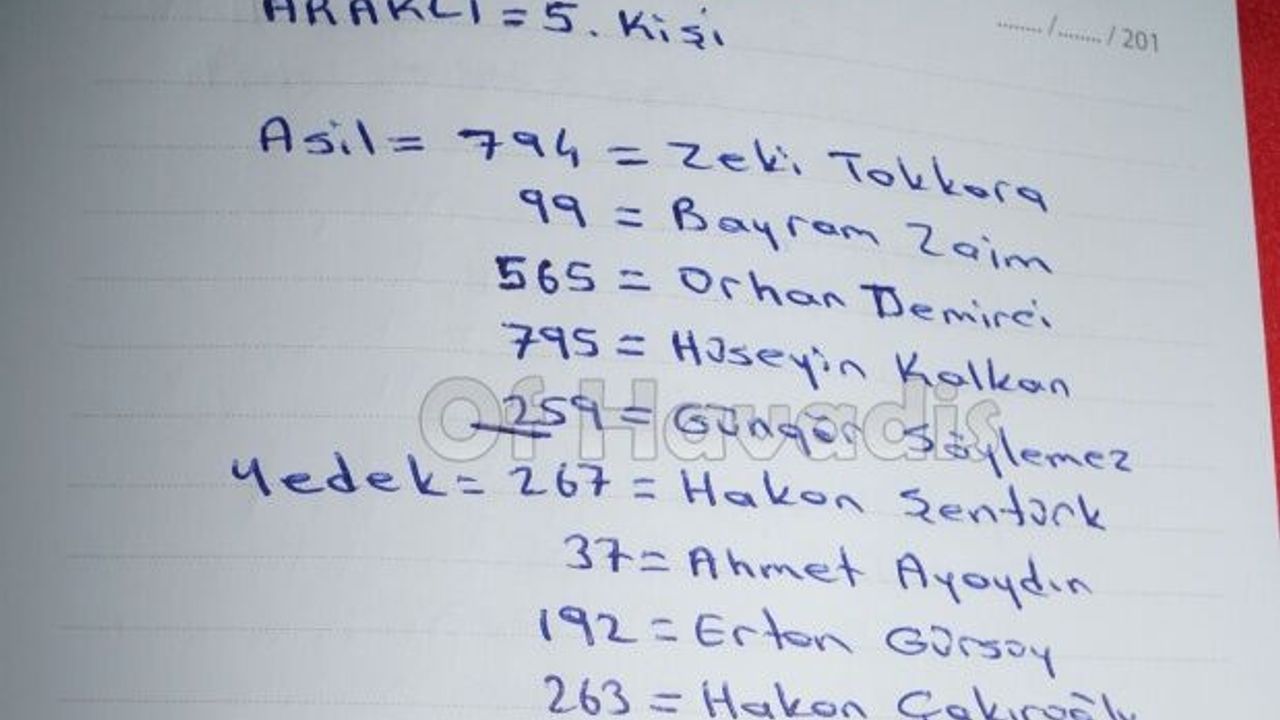 ARAKLI = 5. Kişi
......../......../201
Asil = 794 = Zeki Tokkara
99 = Bayram Zaim
565 = Orhan Demirci
795 = Hüseyin Kalkan
259 = Güngör Söylemez
Of Havadis
Yedek = 267 = Hakan Şentürk
37 = Ahmet Ayaydın
192 = Ertan Gürsoy
263 = Hakan Çakıroğlu